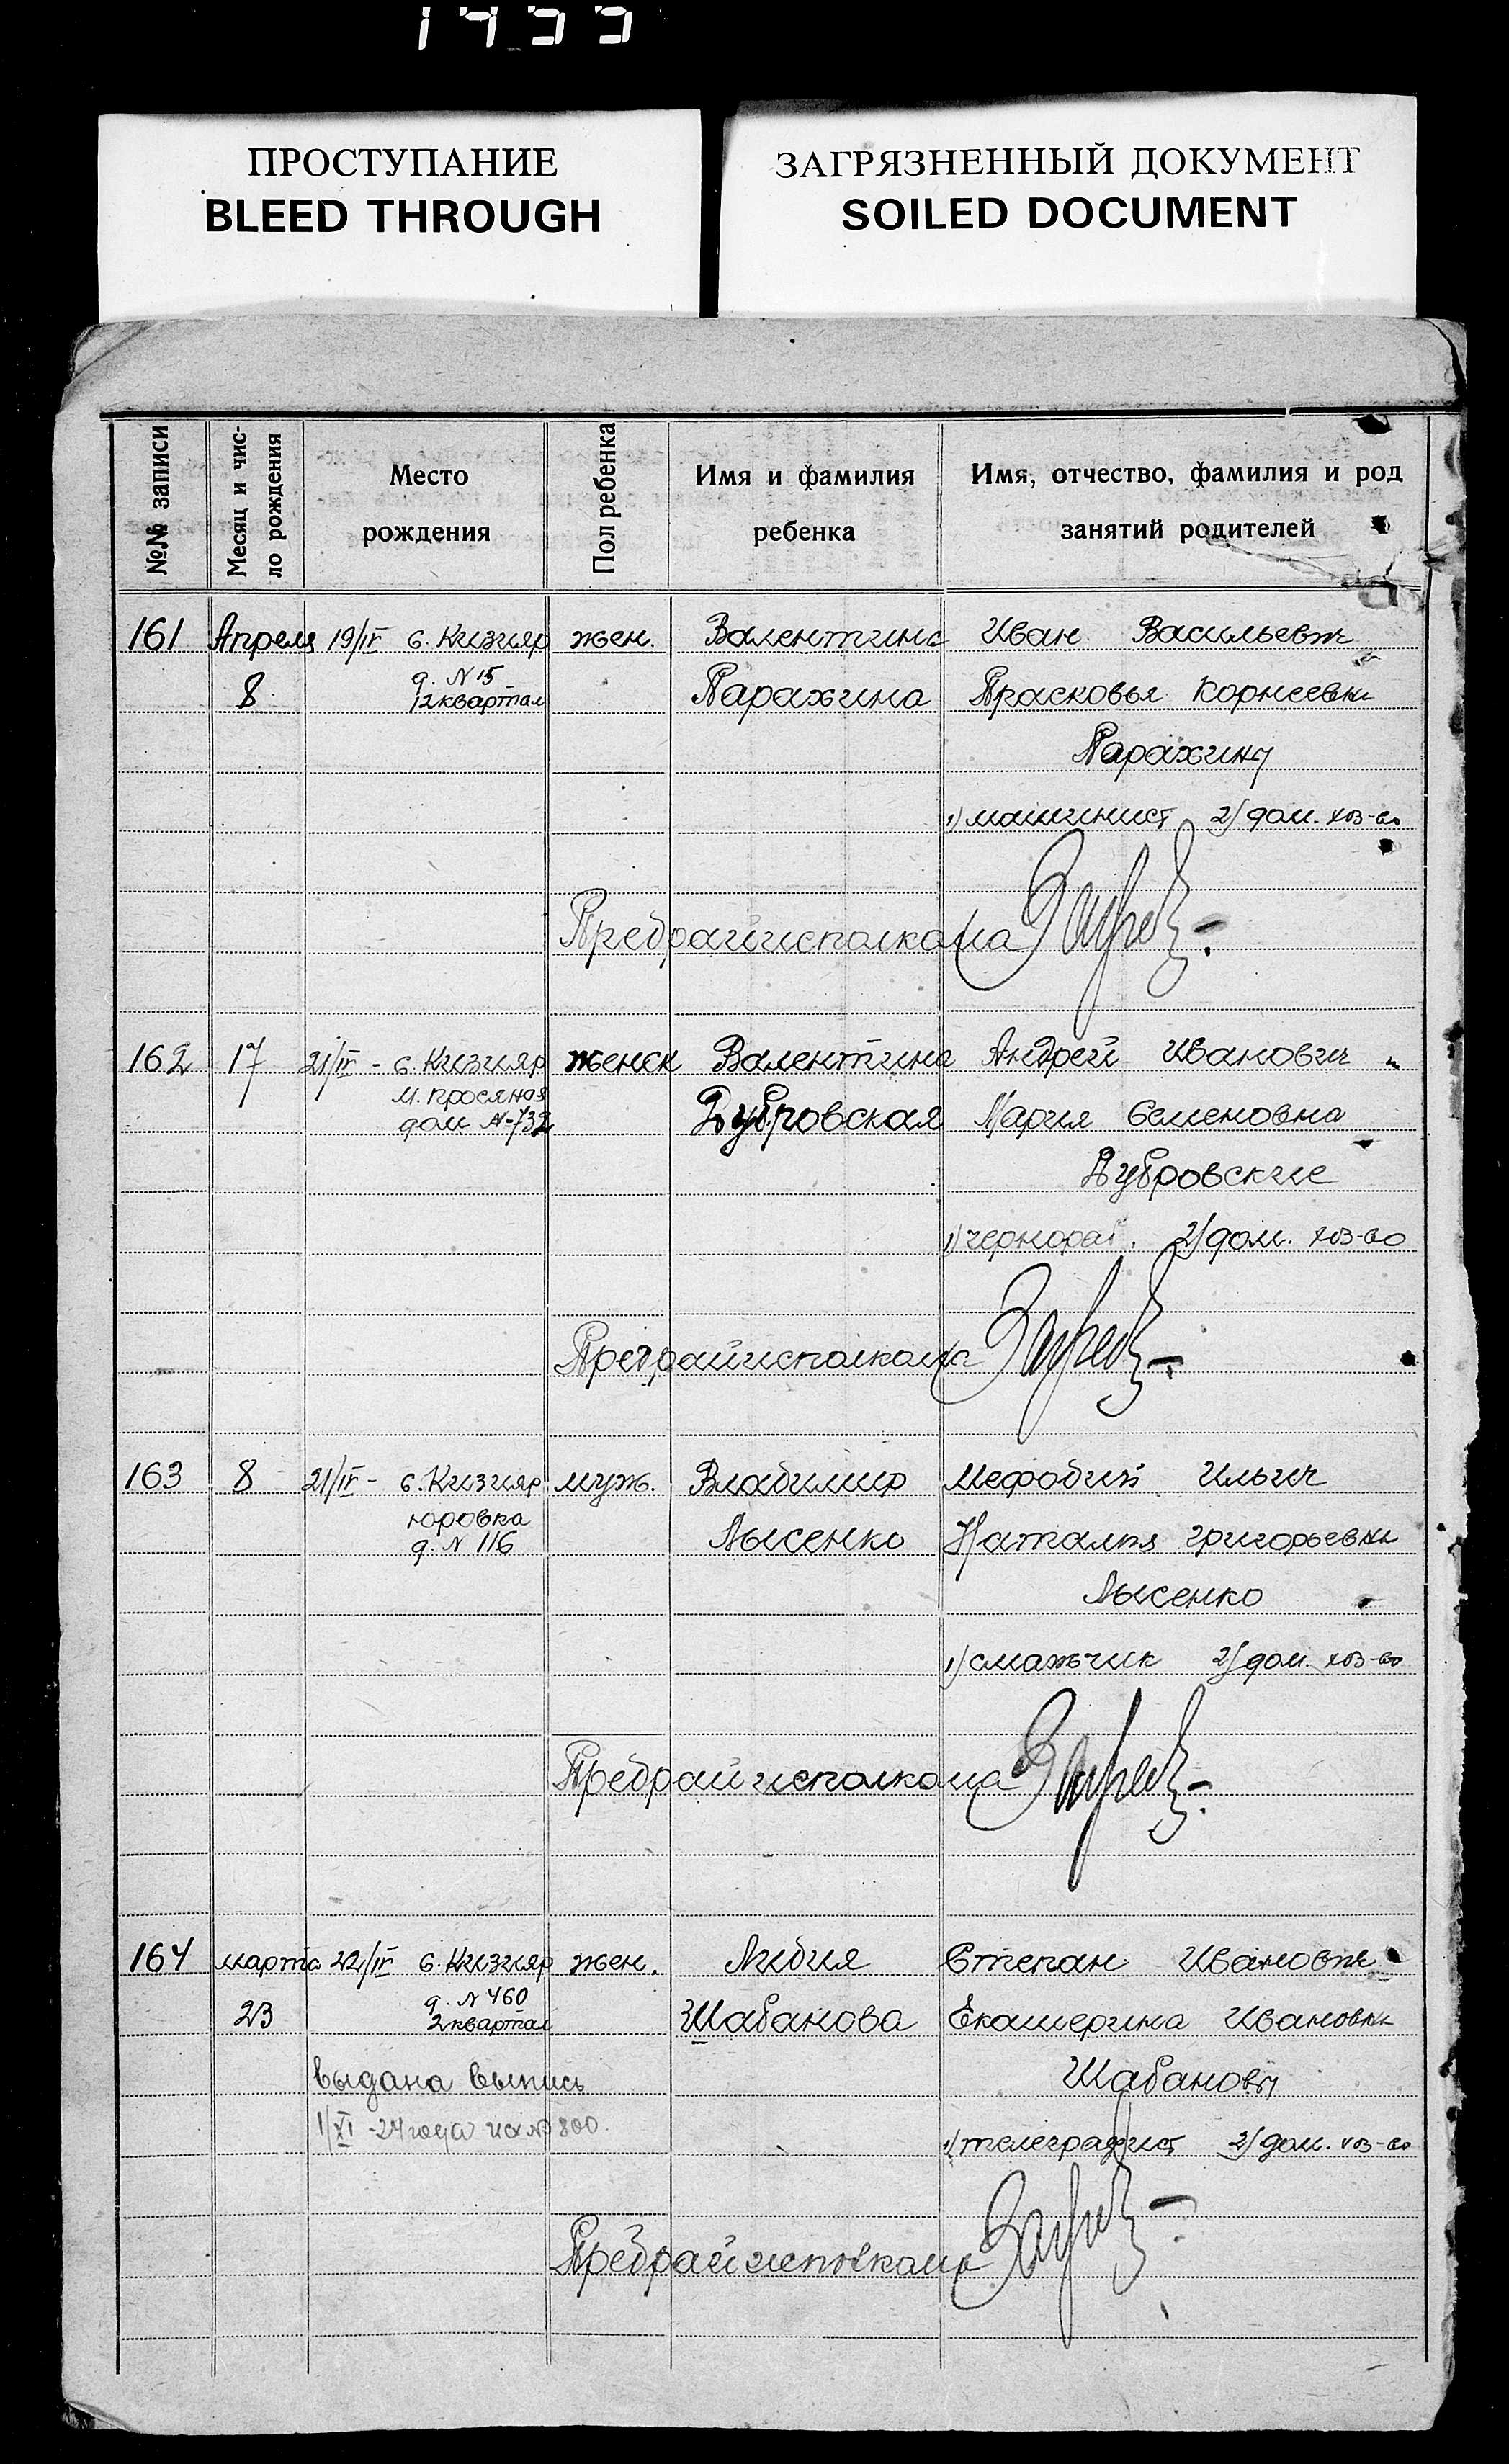 1933
ПРОСТУПАНИЕ
BLEED THROUGH
ЗАГРЯЗНЕННЫЙ ДОКУМЕНТ
SOILED DOCUMENT
№№ записи
Месяц и чис-
ло рождения
Место
рождения
Пол ребенка
Имя и фамилия
ребенка
Имя, отчество, фамилия и род
занятий родителей
161 Апреля 19/IV с. Кизияр жен. Валентина Иван Васильевич
8 д. N 15 Парахина Прасковья Корнеевна
12 квартал
Парахины
1) машинист 2) дом. хоз-во
Предрайисполкома
162 17 21/IV - с. Кизияр женск Валентина Андрей Иванович
м. просяная
дом N-732 Дубровская Мария Семеновна
Дубровские
1) чернораб. 2) дом. хоз-во
Предрайисполкома
163 8 21/IV - с. Кизияр муж. Владимир Мефодий Ильич
юровка
д. N 116 Лысенко Наталия Григорьевна
Лысенко
1) смазчик 2) дом. хоз-во
Предрайисполкома
164 марта 22/IV с. Кизияр жен. Лидия Степан Иванович
23 д. N 460 Шабанова Екатерина Ивановна
2 квартал
выдана выпись Шабановы
1/XI -24 года исх № 800.
1) телеграфист 2) дом. хоз-во
Предрайисполкома